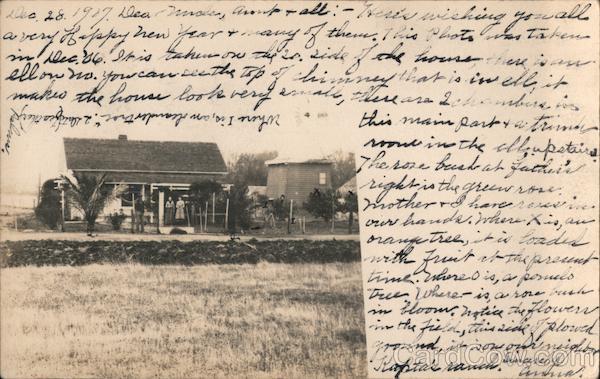 Dec. 28. 1907. Dear Uncle, Aunt & all:- Here's wishing you all
a very Happy New Year & many of them. This Photo was taken
in Dec. '06. It is taken on the So. side of the house, there is an
ell on No. You can see the top of chimney that is in ell, it
makes the house look very small, there are 2 chambers in
this main part & a trunk
room in the ell upstairs.
The rose bush at father's
right is the green rose.
Mother & I have roses in
our hands. Where X is, an
orange tree, it is loaded
with fruit at the present
time. Where O is, a pomelo
tree. Where - is, a rose bush
in bloom. Notice the flowers
in the field, this side of plowed
ground, it is on our neigh-
Hospital ranch.
Anna.
Where I is, an oleander tree.
CardCow.com